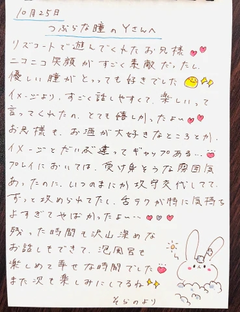 10月25日
つぶらな瞳のYさんへ
リズコートで遊んでくれたお兄様
ニコニコ笑顔がすごく素敵だったし、
優しい瞳がとっても好きでした
イメージより、すごく話しやすくて、楽しいって
言ってくれたの、とても嬉しかったよ〜
お兄様も、お酒が大好きなところとか、
イメージとだいぶ違ってギャップある…
プレイにおいては、受け身そうな雰囲気
あったのに、いつのまにか攻守交代してて
ずっと攻められてたし、舌テクが特に気持ち
よすぎてやばかったよ〜
残った時間も沢山深めな
お話もできて、泡風呂も
楽しめて幸せな時間でした
また次も楽しみにしてるね
そらのより